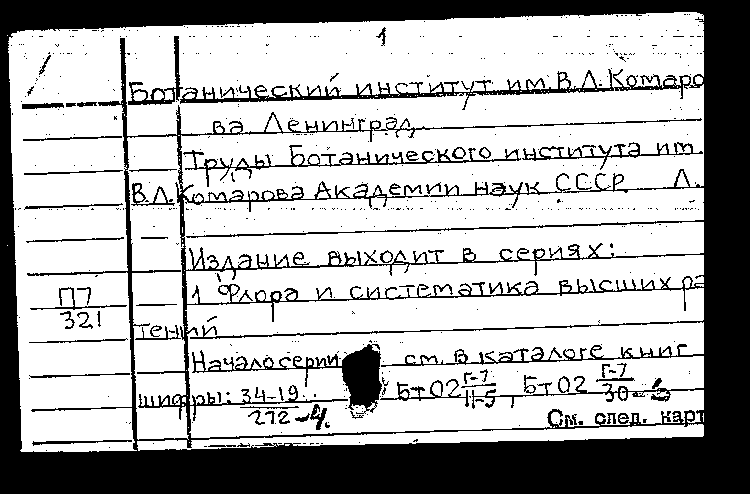 1
Ботанический институт им. В.Л. Комаро
ва Ленинград.
Труды Ботанического института им.
В.Л. Комарова Академии наук СССР Л.
Издание выходит в сериях:
П7
321
1 Флора и систематика высших ра
тений
Начало серии см. в каталоге книг
шифры: 34-19/272-4. БтО2 Г-7/11-5, БтО2 Г-7/30-
См. след. карт